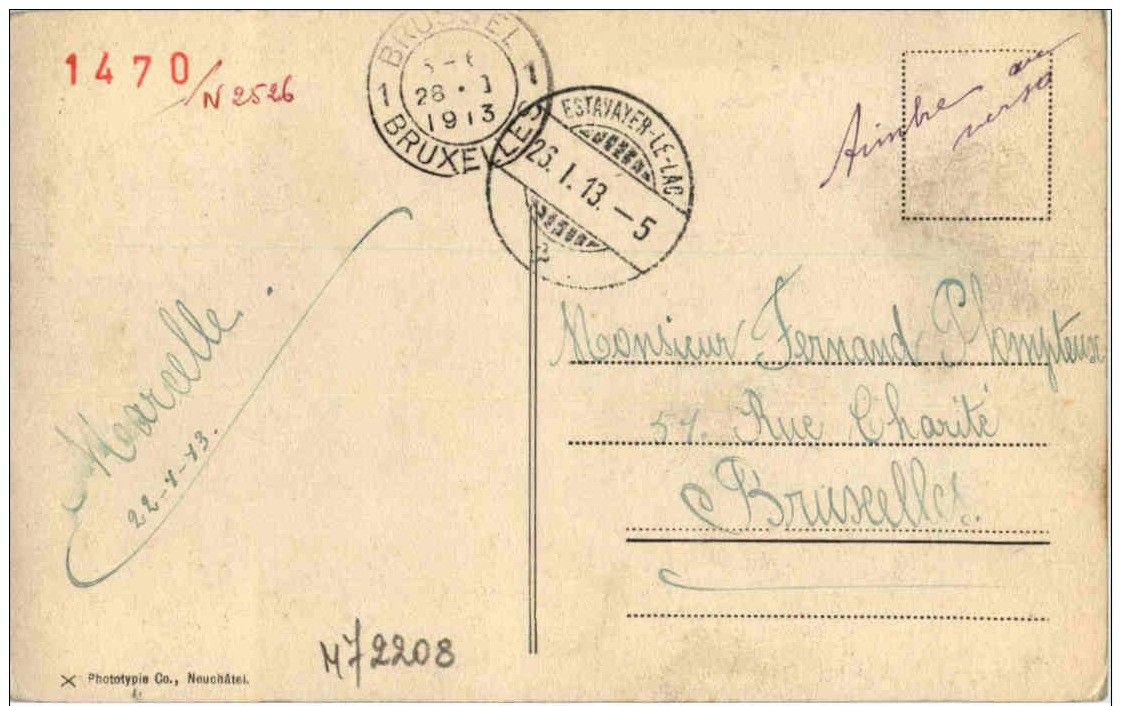 1470/N 2526
BRUSSEL
1 1
28 · I
1913
BRUXELLES
ESTAVAYER-LE-LAC
23. I. 13. – 5
2
Timbre au
verso
Marcelle.
22-1-13.
Monsieur Fernand Plompteux
57. Rue Charité
Bruxelles.
M72208
Phototypie Co., Neuchâtel.